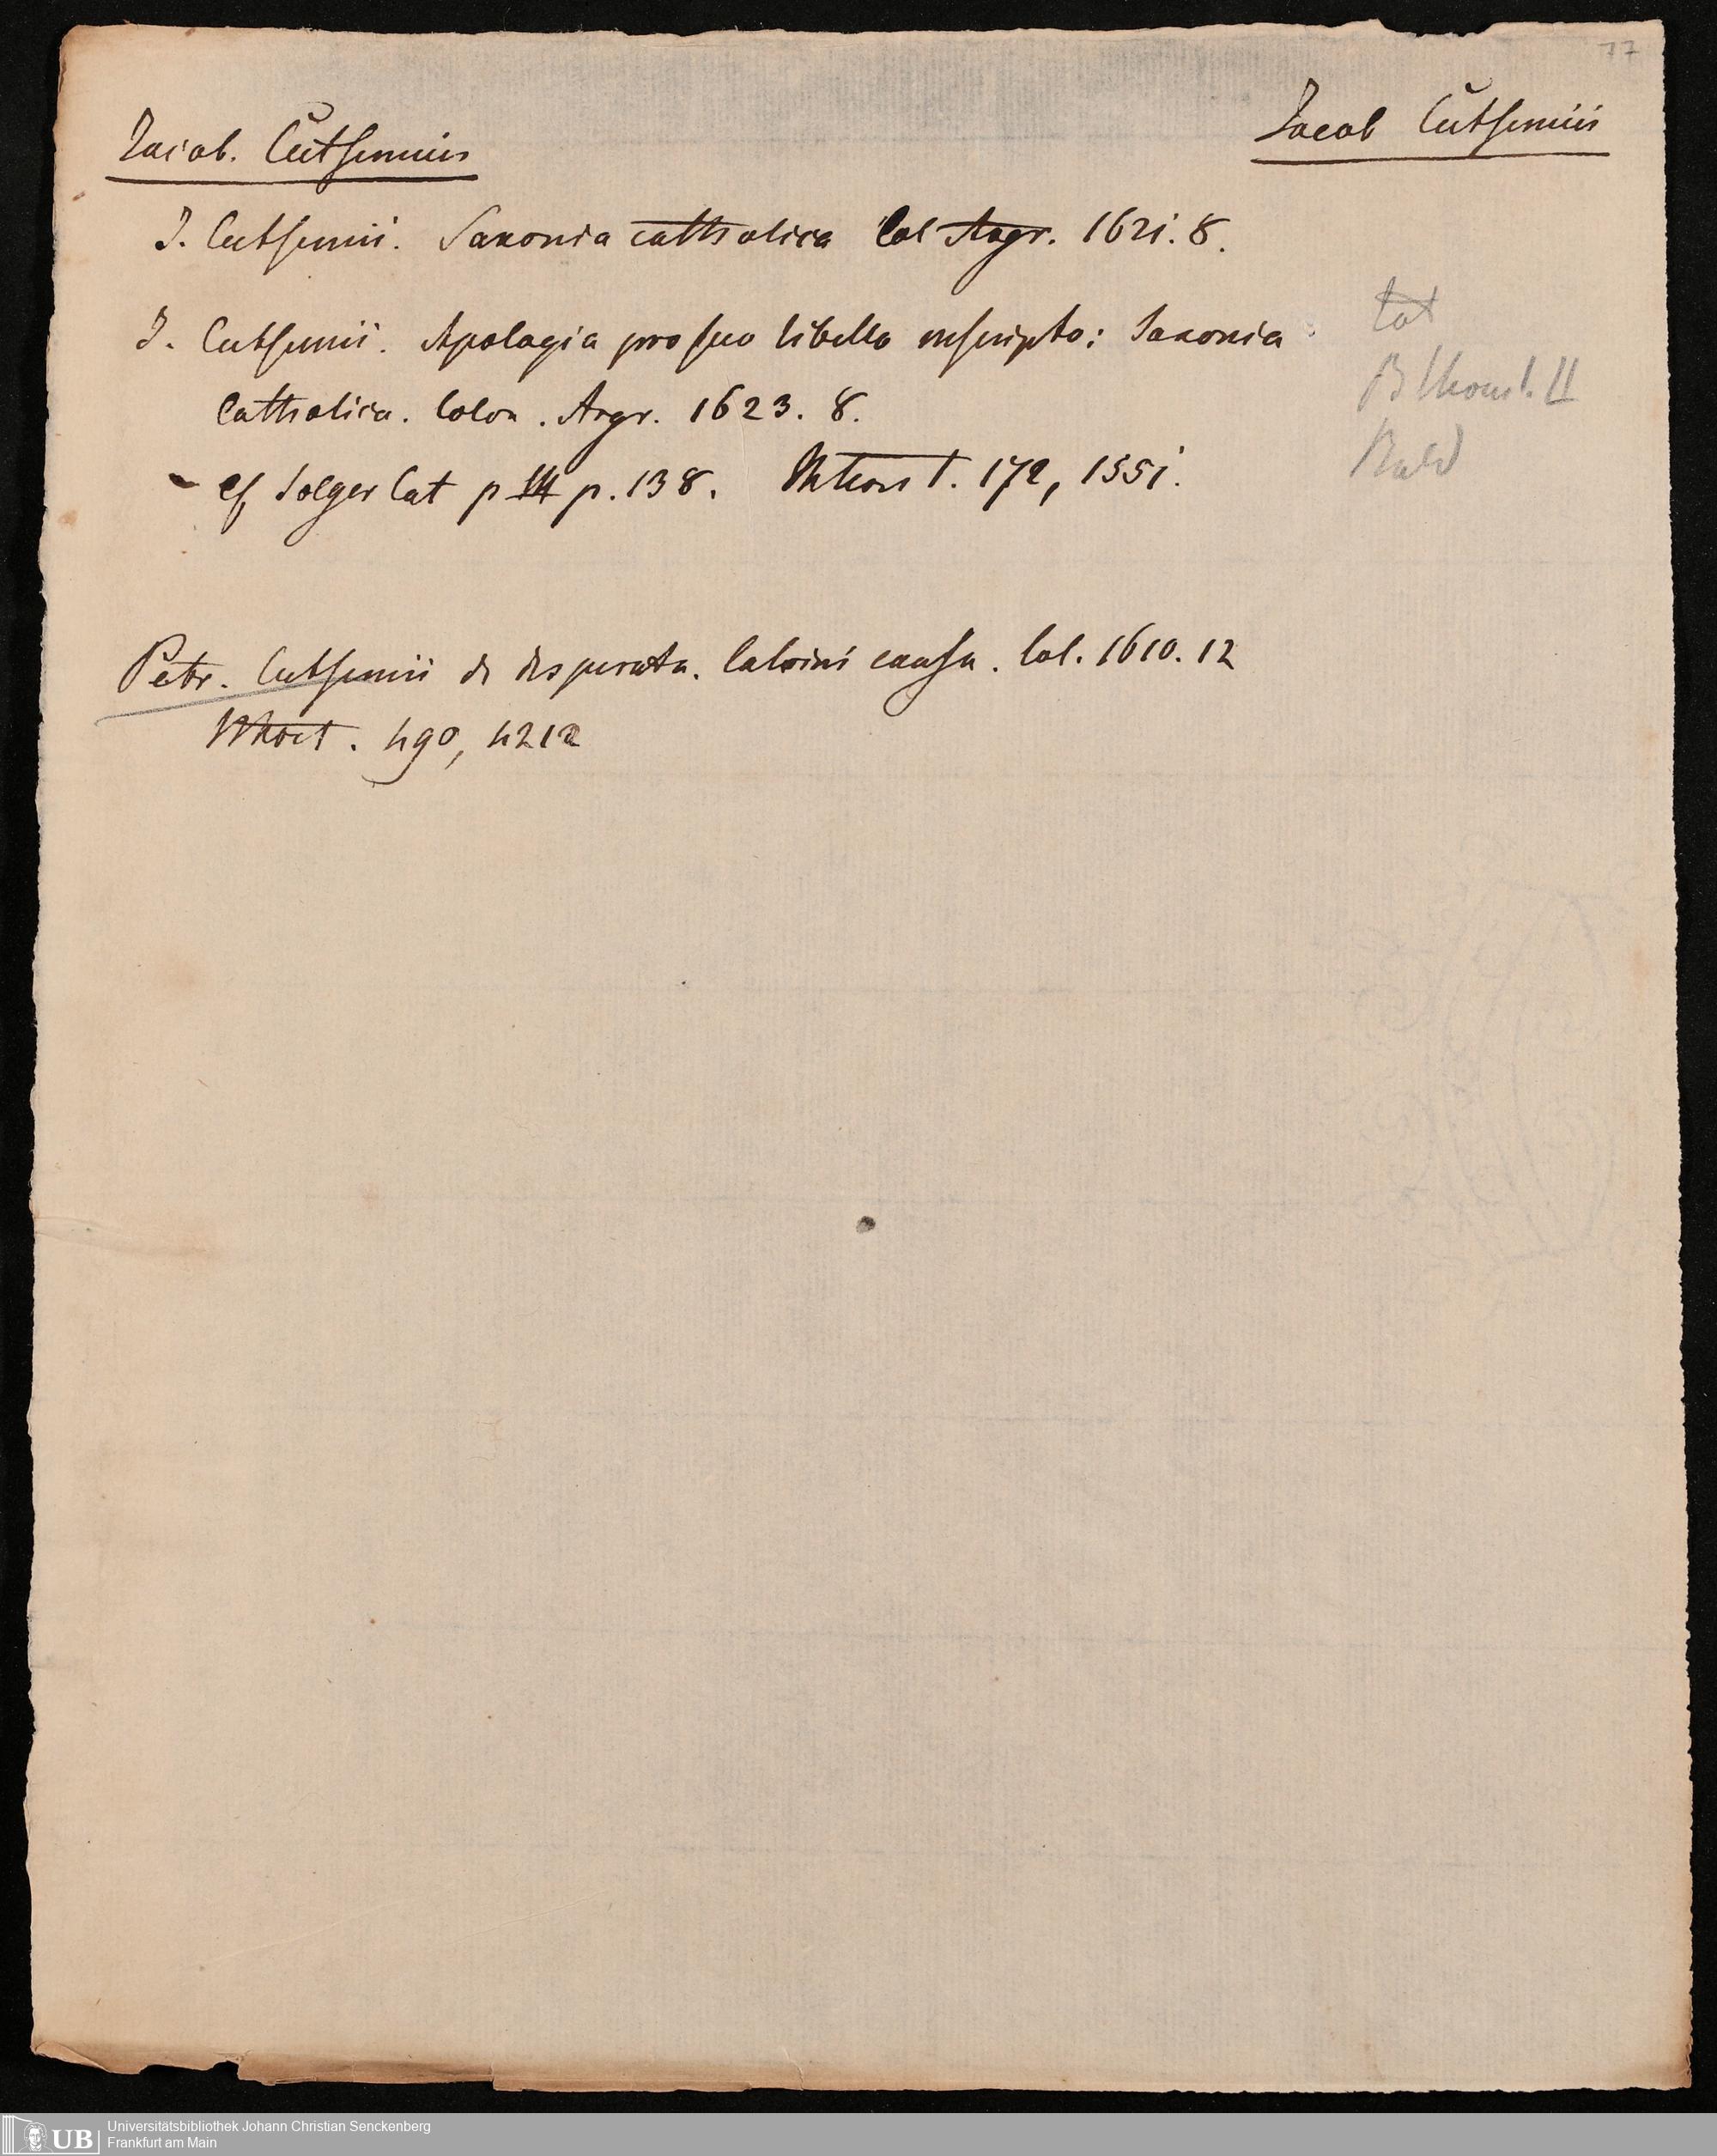 77
Jacob. Cutsemius
Jacob Cutsemius
J. Cutsemii. Saxonia catholica Col Argr. 1621. 8.
J. Cutsemii. Apologia pro suo libello inscripto: Saxonia
Catholica. Colon. Argr. 1623. 8.
cf Solger Cat p III p. 138. 172, 1551.
Petr. Cutsemii de desperata. Calvini causa. Col. 1610. 12
490, 4212
Cat
II
UB Universitätsbibliothek Johann Christian Senckenberg
Frankfurt am Main